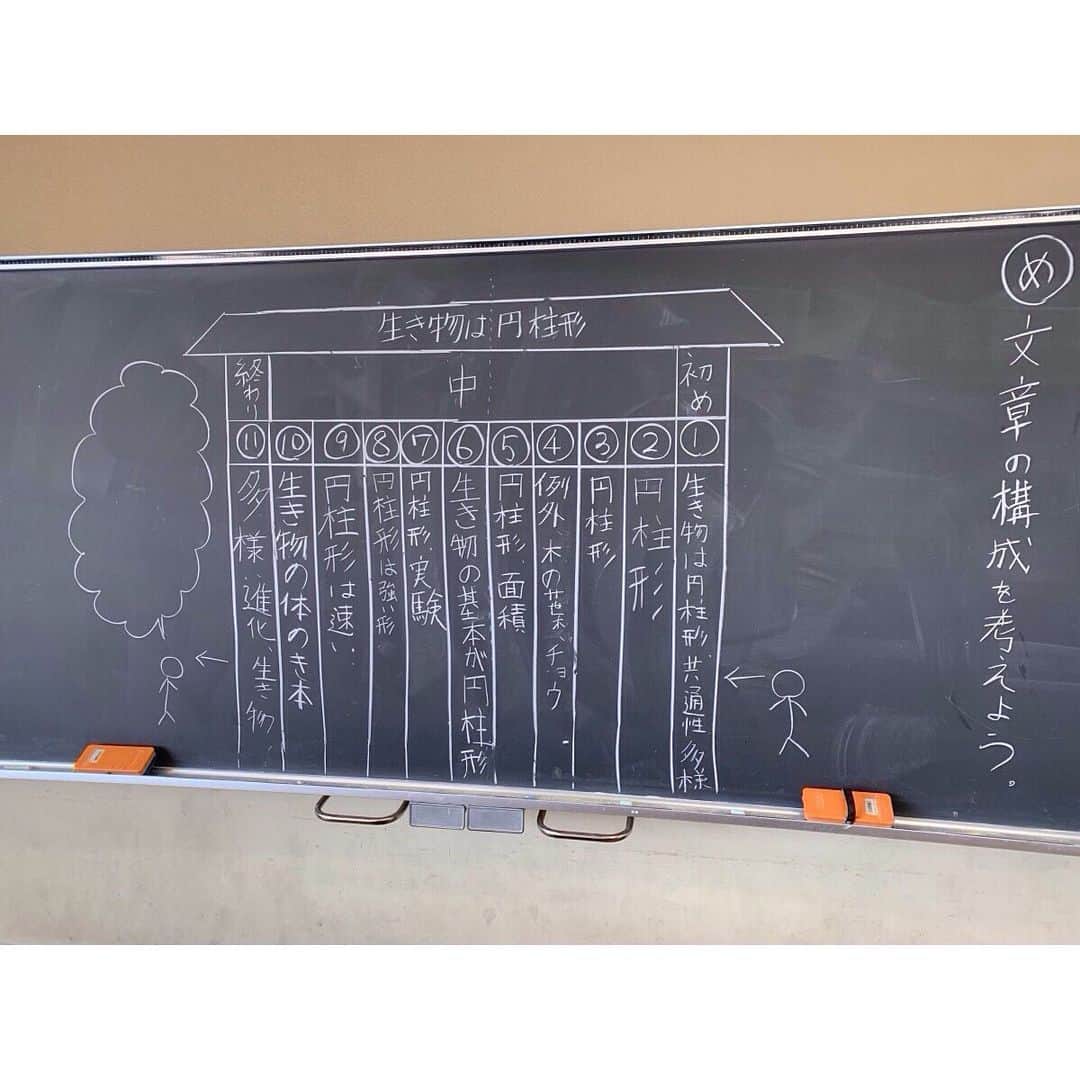 め
文章の構成を考えよう。
生き物は円柱形
初め
中
終わり
①
生き物は円柱形、共通性 多様
②
円柱形
③
円柱形
④
例外 木の葉、チョウ
⑤
円柱形、面積
⑥
生き物の基本が円柱形
⑦
円柱形、実験
⑧
円柱形は強い形
⑨
円柱形は速い
⑩
生き物の体のき本
⑪
多様 進化、生き物、